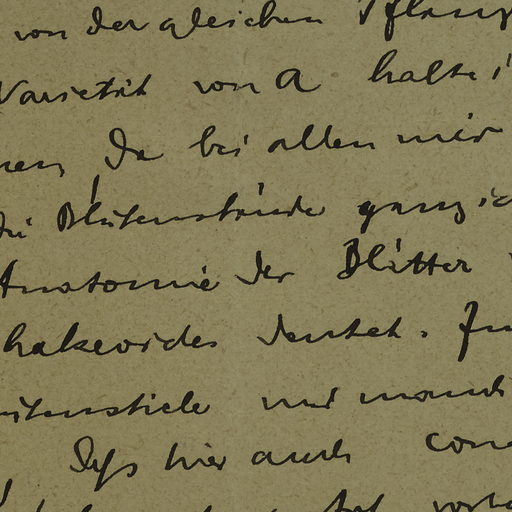 von der gleichen Pflanz
Varietät von A halte i
nen, Da bei allen mir
die Blütenstände ganz ic
Anatomie der Blätter
hakeoides deutet. In
ütenstiele und manch
Daß hier auch con